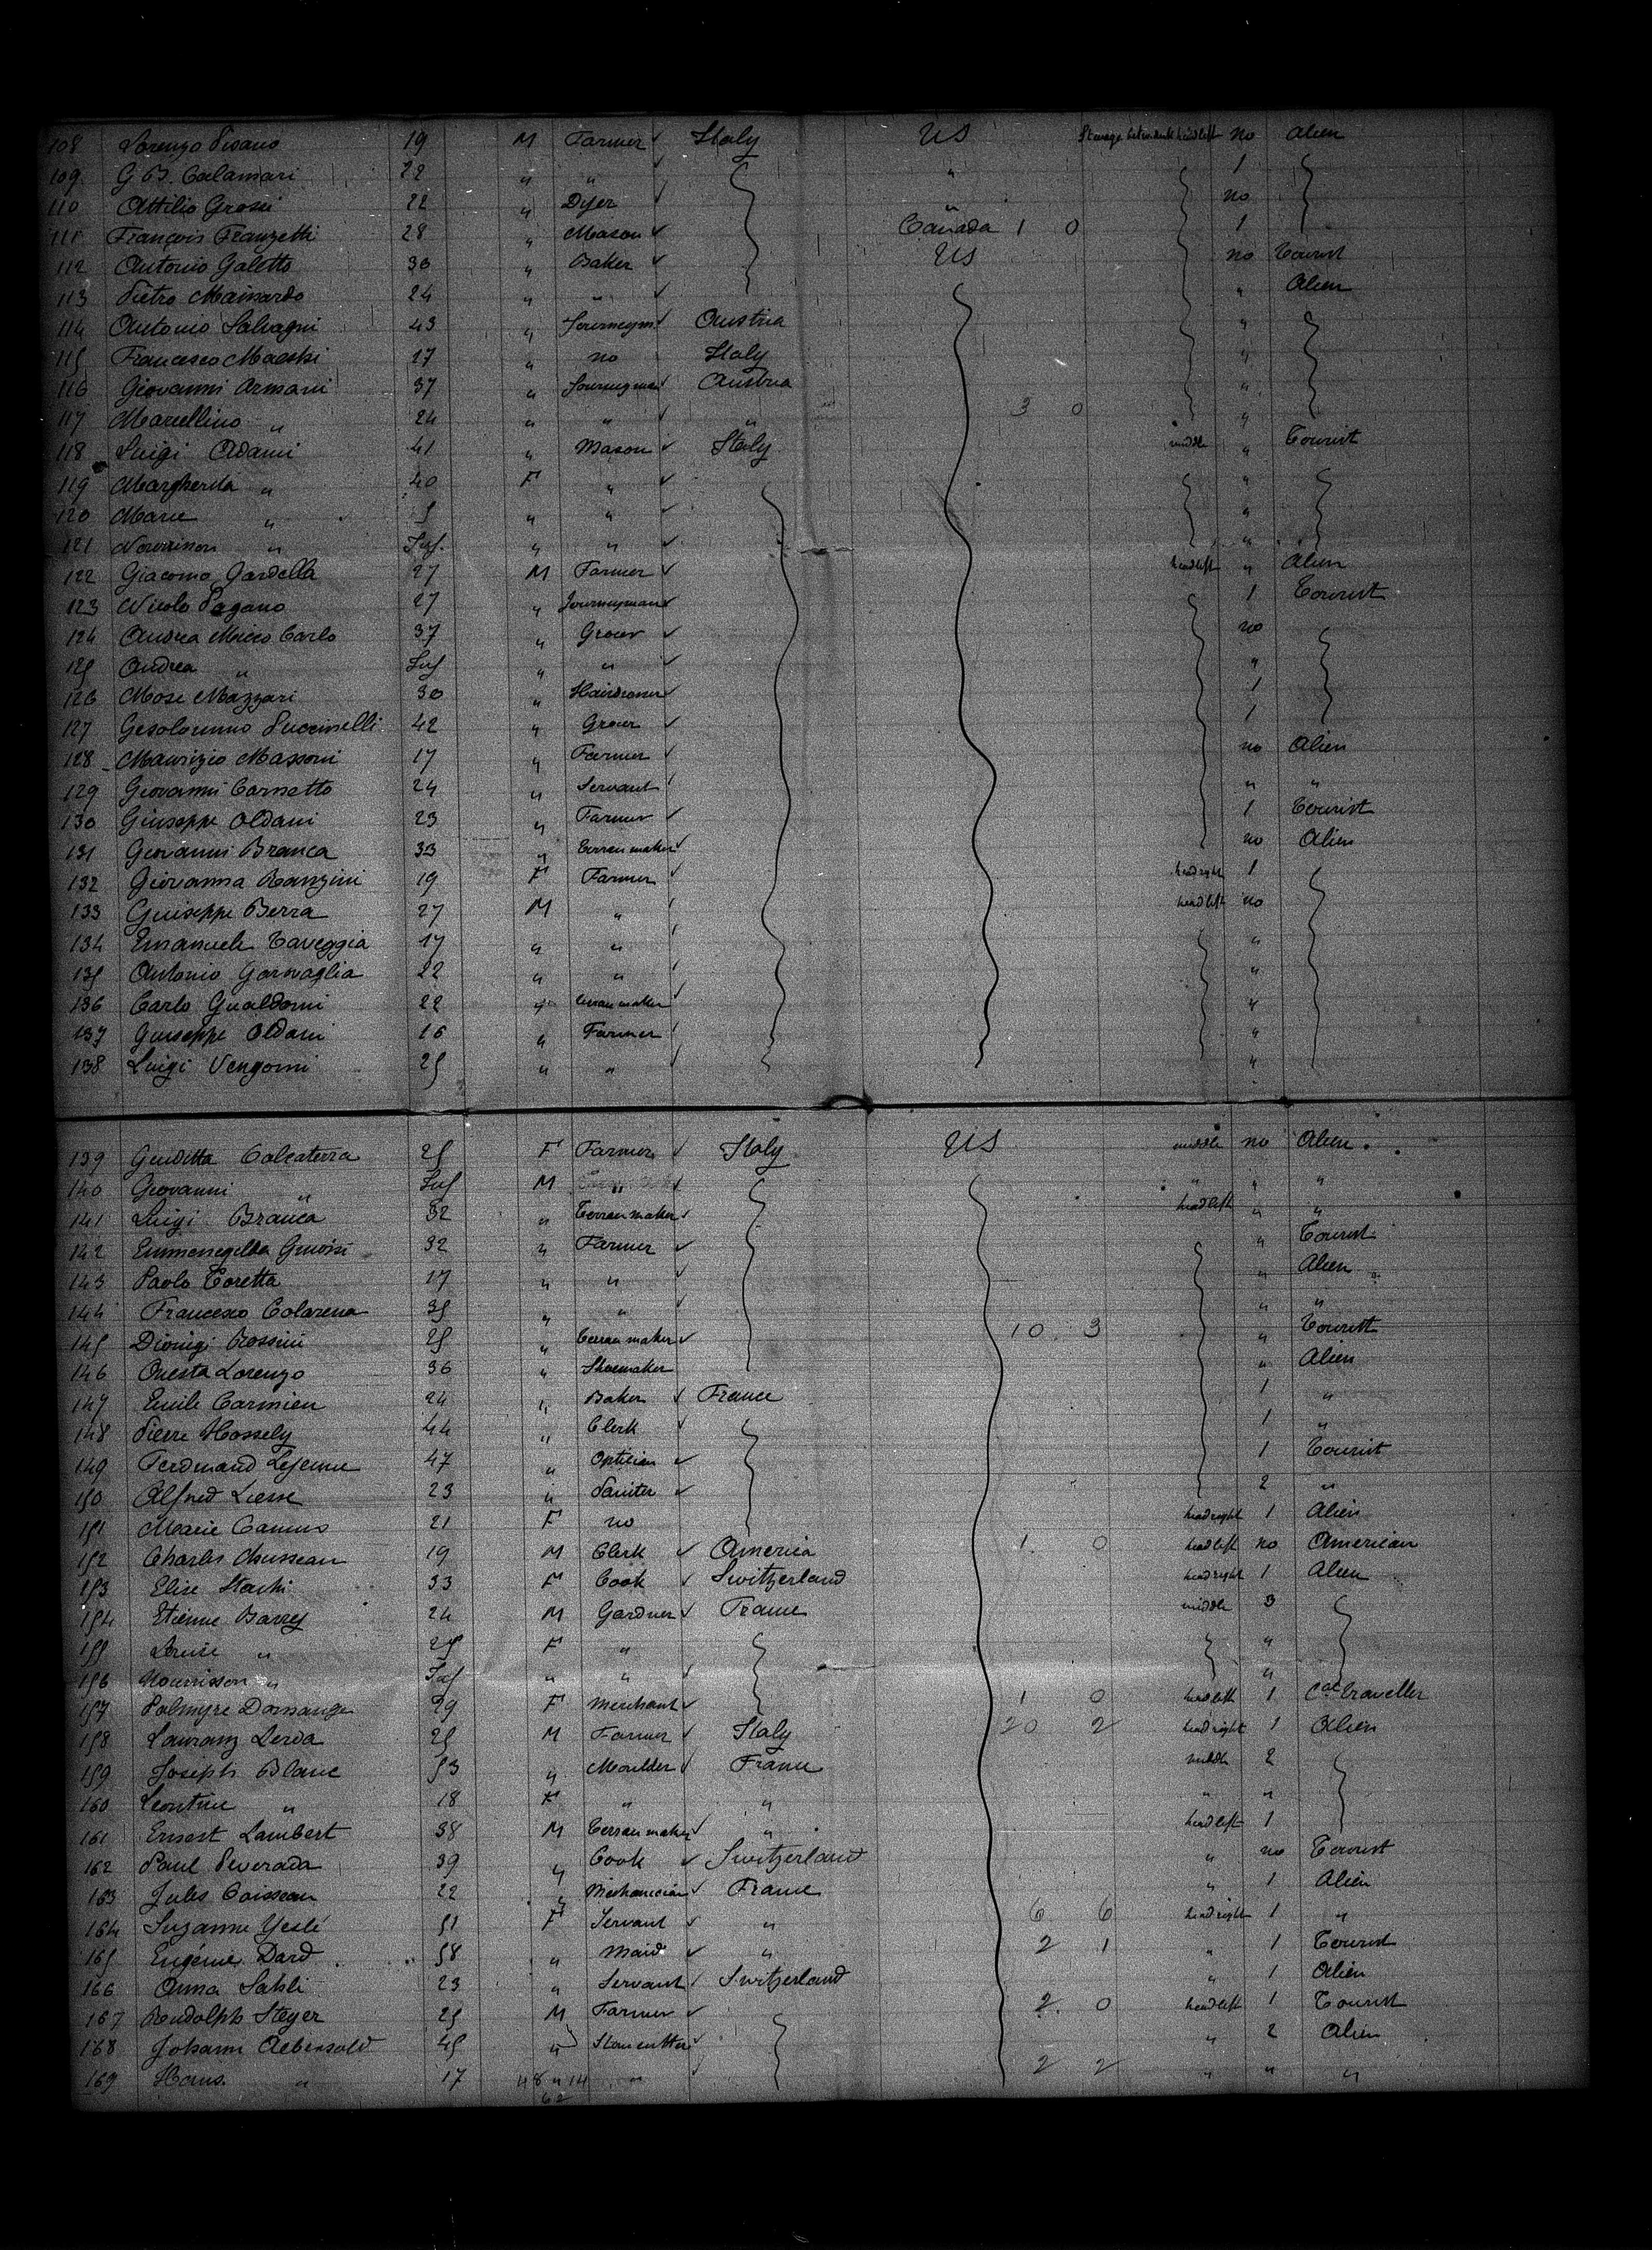 108 Lorenzo Pisano 19 M Farmer ✓ Italy US Steerage betw. deck head left no Alien
109 G B. Calamari 22 " " ✓ " 1
110 Attilio Grossi 22 " Dyer ✓ " no
111 François Franzetti 28 " Mason ✓ Canada 1 0 1
112 Antonio Galetto 30 " Baker ✓ US no Tourist
113 Pietro Mainardo 24 " " ✓ " Alien
114 Antonio Salvagni 43 " Journeym ✓ Austria "
115 Francesco Maestri 17 " no Italy "
116 Giovanni Armani 37 " Journeyman ✓ Austria "
117 Marcellino " 24 " " ✓ " 3 0 "
118 Luigi Adami 41 " Mason ✓ Italy middle " Tourist
119 Margherita " 40 F " ✓ "
120 Marie " 5 " " ✓ "
121 " Inf. " " ✓ "
122 Giacomo Gardella 27 M Farmer ✓ head left " Alien
123 Nicolo Pagano 27 " Journeyman ✓ 1 Tourist
124 Andrea Carlo 37 " Grocer ✓ no
125 Andrea " Inf " " ✓ "
126 Mose Mazzari 30 " Hairdresser ✓ 1
127 Puccinelli 42 " Grocer ✓ 1
128 Maurizio Massoni 17 " Farmer ✓ no Alien
129 Giovanni Cornetto 24 " Servant " "
130 Giuseppe Oldani 23 " Farmer ✓ 1 Tourist
131 Giovanni Branca 33 " Terran maker ✓ no Alien
132 Giovanna Ranzini 19 F Farmer ✓ head right 1
133 Guiseppe Berra 27 M " head left no
134 Emanuele Taveggia 17 " " "
135 Antonio Garavaglia 22 " " "
136 Carlo Gualdoni 22 " Terran maker ✓ "
137 Guiseppe Oldani 16 " Farmer "
138 Luigi Vengorni 25 " " "
139 Giuditta Calcaterra 25 F Farmer ✓ Italy US middle no Alien
140 Giovanni " Inf M " ✓ " " "
141 Luigi Branca 32 " Terran maker ✓ head left " "
142 Ermenegilda 32 " Farmer ✓ " Tourist
143 Paolo Toretta 17 " " ✓ " Alien
144 Francesco 35 " " ✓ " "
145 Dionigi Rossini 25 " Terran maker ✓ 10 3 " Tourist
146 Onesta Lorenzo 36 " Shoemaker " Alien
147 Emile Carmien 24 " Baker ✓ France 1 "
148 Pierre Hossely 44 " Clerk ✓ 1 "
149 Ferdinand Lejeune 47 " Optician ✓ 1 Tourist
150 Alfred Liesse 23 " ✓ 2 "
151 Marie Camus 21 F no head right 1 Alien
152 Charles Chusseau 19 M Clerk ✓ America 1 0 head left no American
153 Elise Stachi 33 F Cook ✓ Switzerland head right 1 Alien
154 Etienne Barrey 24 M Gardner ✓ France middle 3
155 Louise " 25 F " "
156 Nourrisson " Inf " " ✓ "
157 Palmyre Domange 29 F Merchant ✓ 1 0 head left 1 Cal traveller
158 Lauranz Lerda 25 M Farmer ✓ Italy 20 2 head right 1 Alien
159 Joseph Blanc 53 " Moulder ✓ France middle 2
160 Leontine " 18 F " " " "
161 Ernest Lambert 38 M Terran maker ✓ " head left 1
162 Paul Peverada 39 " Cook ✓ Switzerland " no Tourist
163 Jules Caisseau 22 " Mechanician ✓ France " 1 Alien
164 Suzanne Yeslé 51 F Servant ✓ " 6 6 head right 1 "
165 Eugénie Dard 58 " Maid ✓ " 2 1 " 1 Tourist
166 Anna Sahli 23 " Servant Switzerland " 1 Alien
167 Rudolph Steyer 25 M Farmer ✓ 2 0 head left 1 Tourist
168 Johann Aebersold 45 " Stonecutter ✓ " 2 Alien
169 Hans " 17 48 " 14 " 2 2 " " "
62